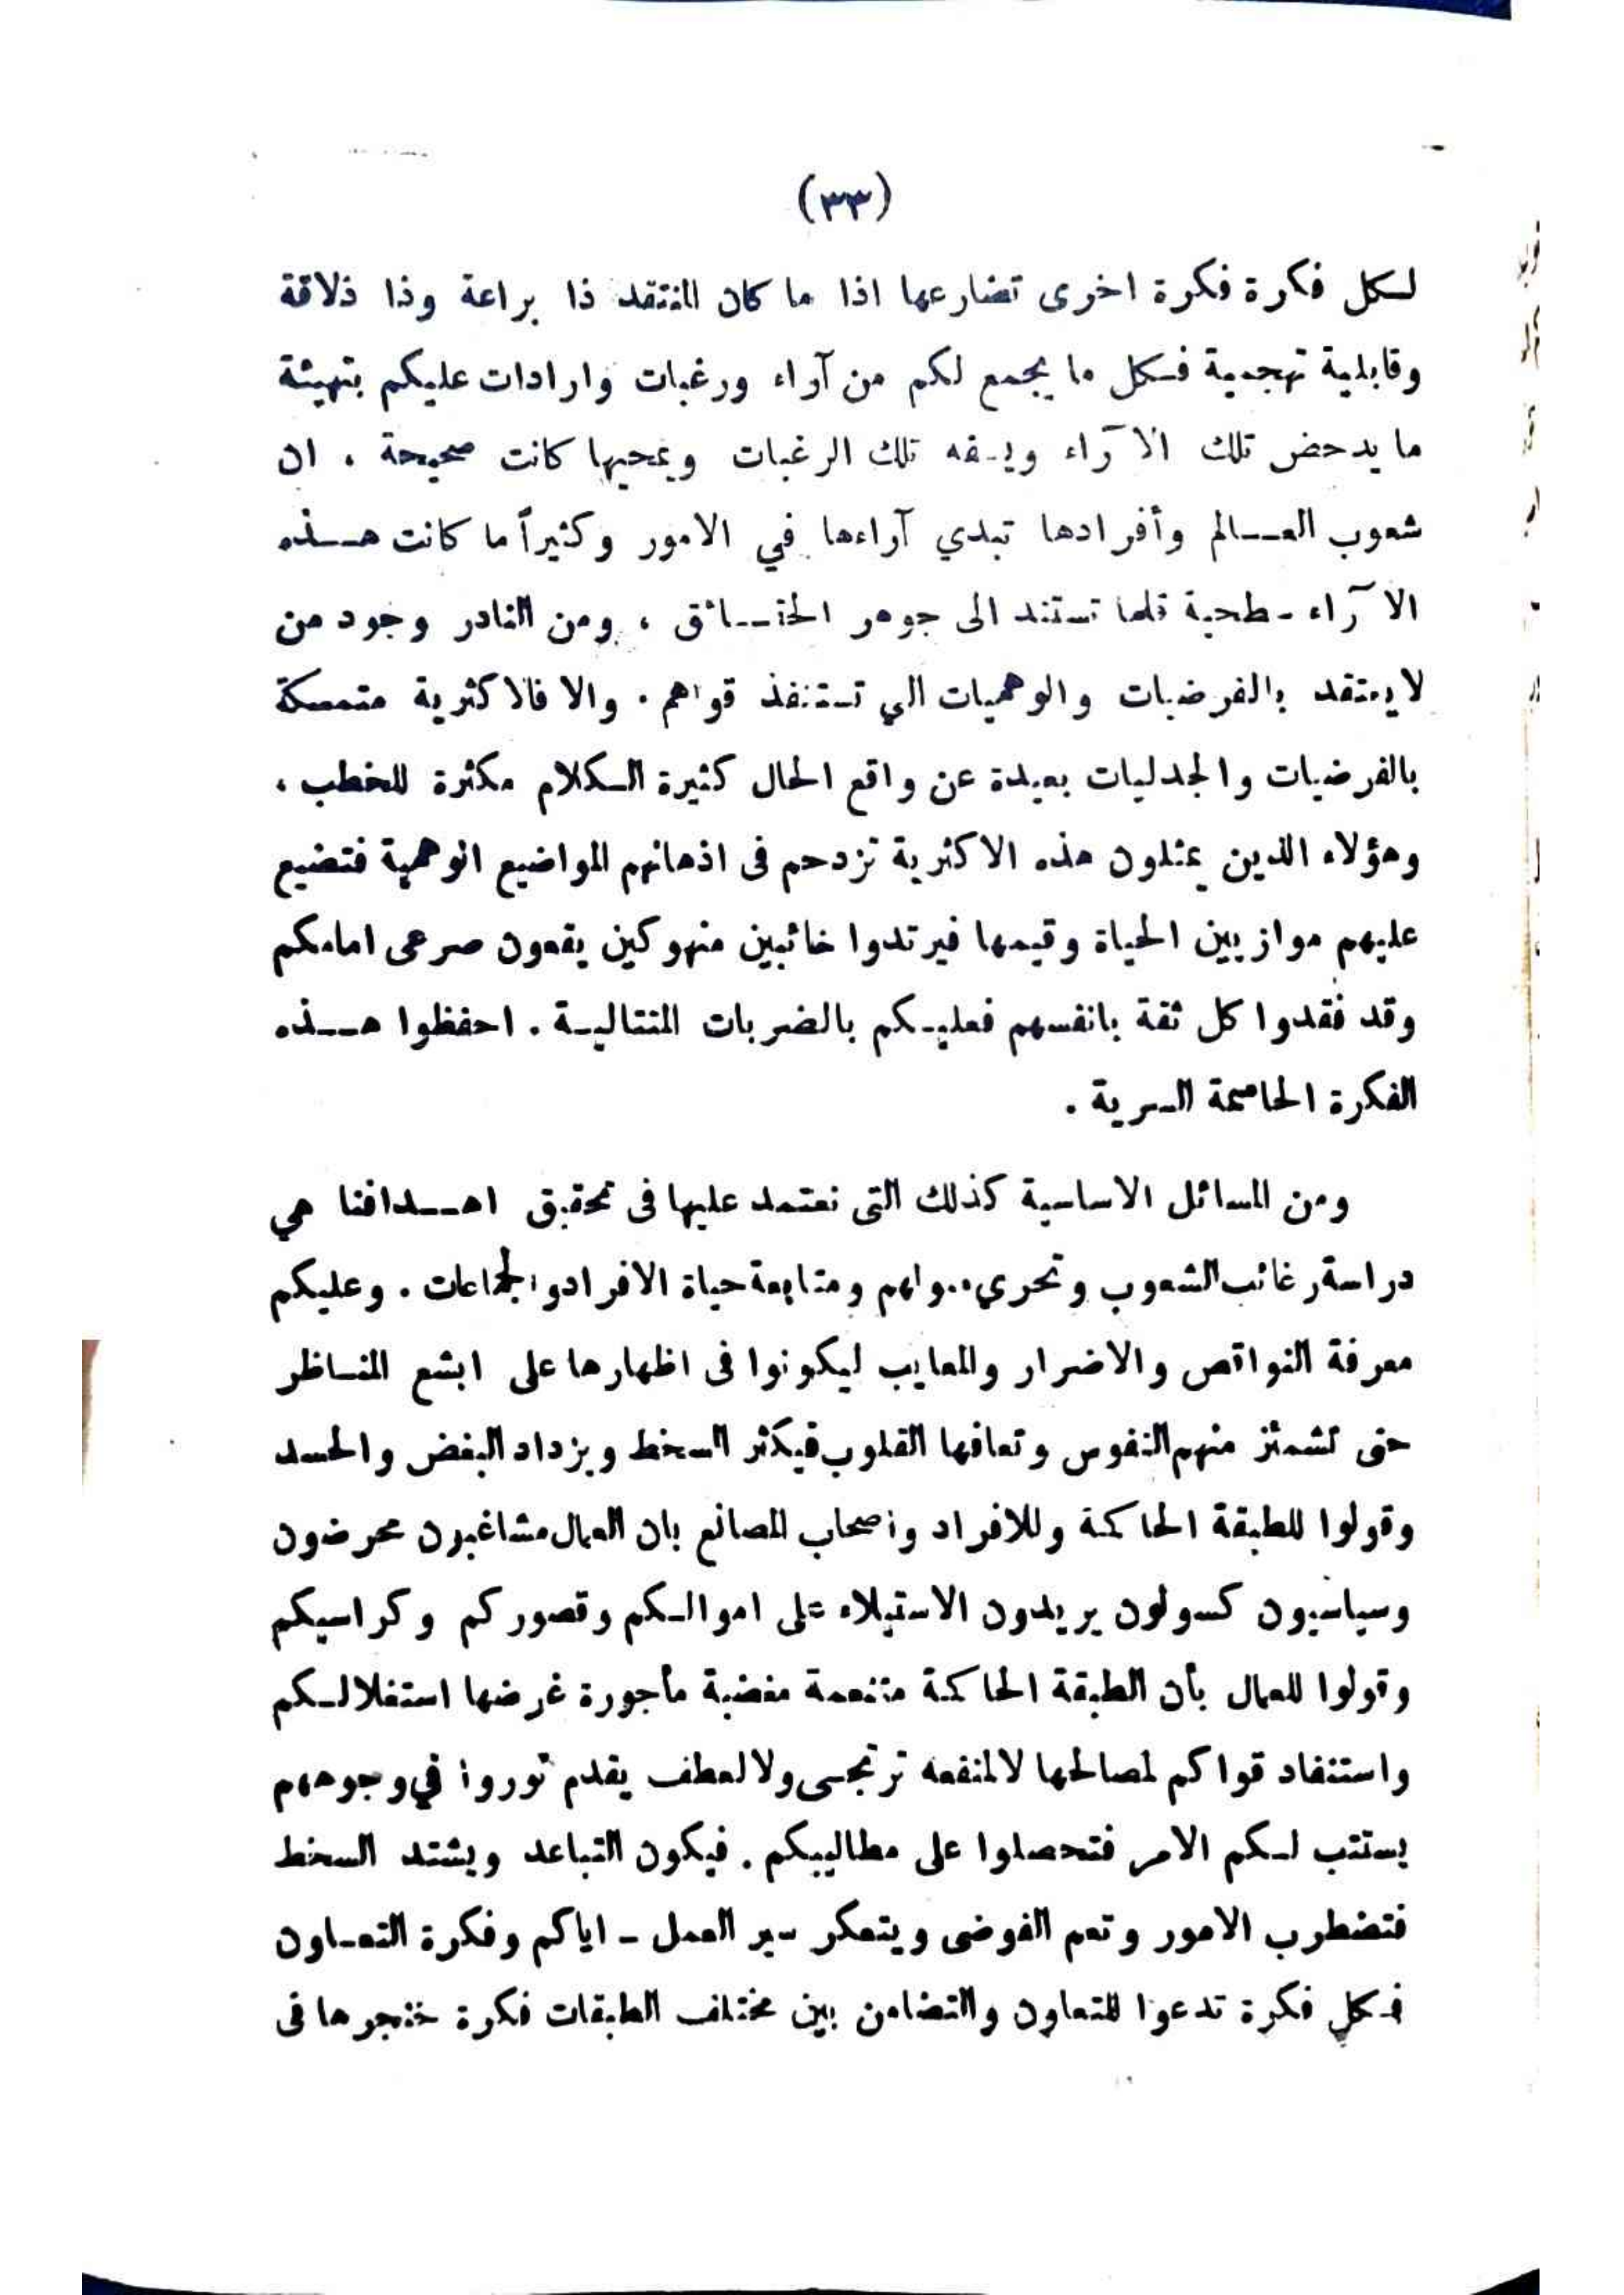 (٣٣)
لكل فكرة فكرة اخرى تضارعها اذا ما كان المنتقد ذا براعة وذا ذلاقة
وقابلية تهجمية فكل ما يجمع لكم من آراء ورغبات وارادات عليكم بتهيئة
ما يدحض تلك الآراء ويسفه تلك الرغبات ويمحيها كانت صحيحة ، ان
شعوب العالم وأفرادها تبدي آراءها في الامور وكثيراً ما كانت هذه
الآراء سطحية قلما تستند الى جوهر الحقائق ، ومن النادر وجود من
لا يعتقد بالفرضيات والوهميات التي تستنفذ قواهم . والا فالاكثرية متمسكة
بالفرضيات والجدليات بعيدة عن واقع الحال كثيرة الكلام مكثرة للخطب ،
وهؤلاء الذين يمثلون هذه الاكثرية تزدحم فى اذهانهم المواضيع الوهمية فتضيع
عليهم موازيين الحياة وقيمها فيرتدوا خائبين منهوكين يقعون صرعى امامكم
وقد فقدوا كل ثقة بانفسهم فعليكم بالضربات المتتالية . احفظوا هذه
الفكرة الحاسمة السرية .
ومن المسائل الاساسية كذلك التى نعتمد عليها فى تحقيق اهدافنا هي
دراسة رغائب الشعوب وتحري ميولهم ومتابعة حياة الافراد والجماعات . وعليكم
معرفة النواقص والاضرار والمعايب ليكونوا فى اظهارها على ابشع المناظر
حتى تشمئز منهم النفوس وتعافها القلوب فيكثر السخط ويزداد البغض والحسد
وقولوا للطبقة الحاكمة وللافراد واصحاب المصانع بان العمال مشاغبون محرضون
وسياسيون كسولون يريدون الاستيلاء على اموالكم وقصوركم وكراسيكم
وقولوا للعمال بأن الطبقة الحاكمة متنعمة مغضبة مأجورة غرضها استغلالكم
واستنفاد قواكم لمصالحها لا لمنفعه ترتجى ولا لعطف يقدم ثوروا في وجوههم
يستتب لكم الامر فتحصلوا على مطاليبكم . فيكون التباعد ويشتد السخط
فتضطرب الامور وتعم الفوضى ويتعكر سير العمل ـ اياكم وفكرة التعاون
فكل فكرة تدعوا للتعاون والتضامن بين مختلف الطبقات فكرة خنجرها فى